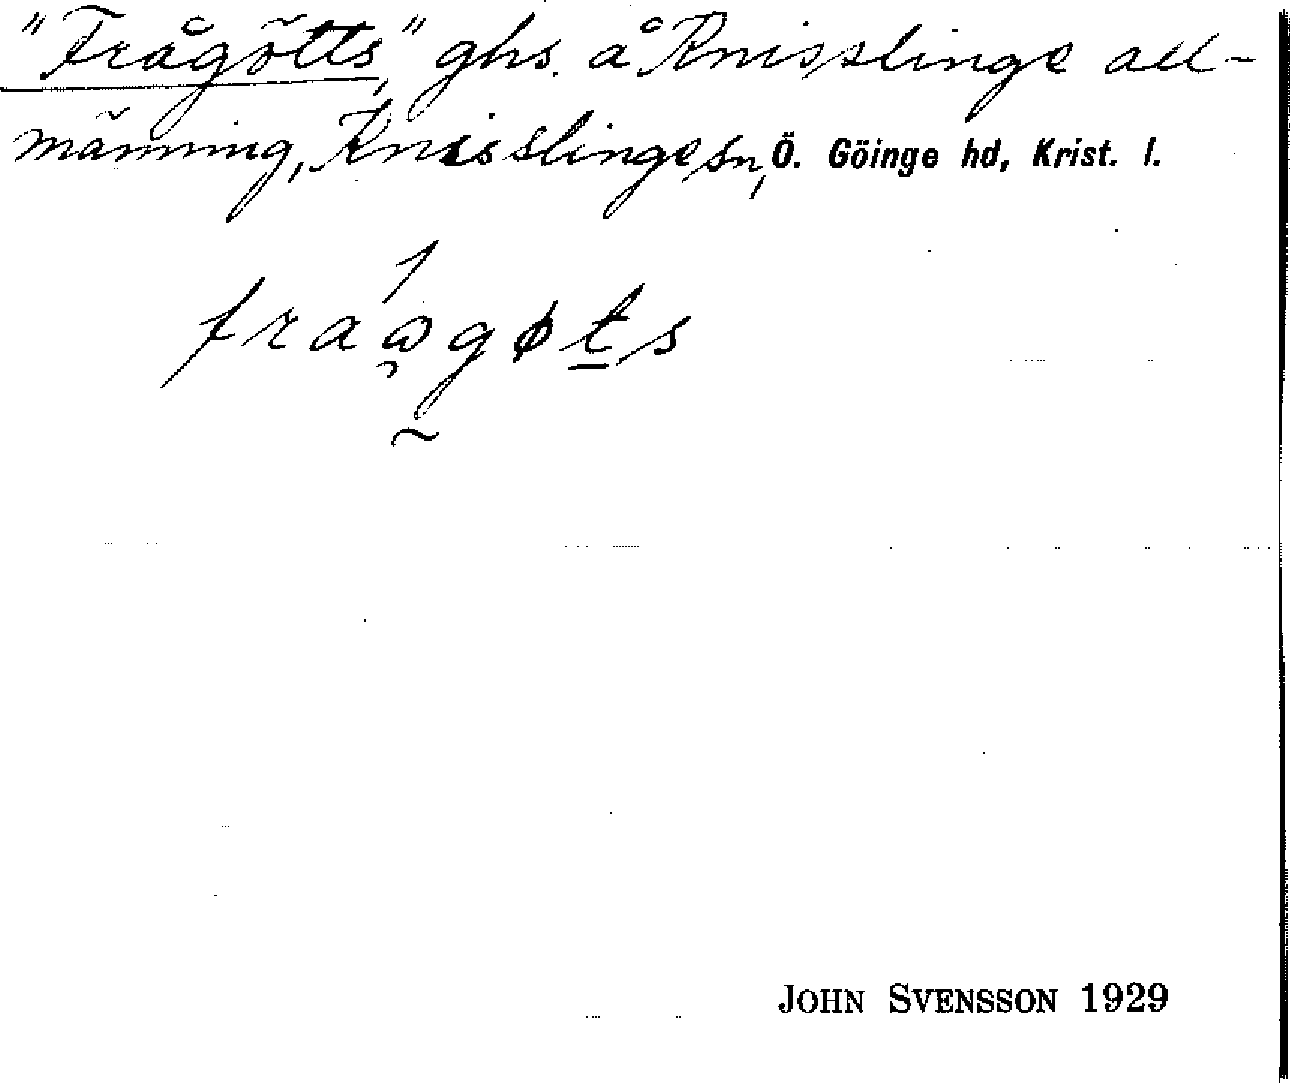 "Frågötts," ghs. å Knisslinge all-
männing, Knisslinge sn, Ö. Göinge hd, Krist. l.
JOHN SVENSSON 1929